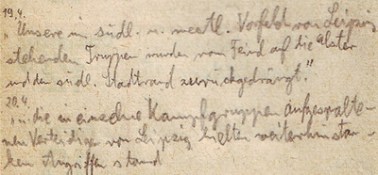 19.4.
„Unsere im südl. u. westl. Vorfeld von Leipzig
stehenden Truppen wurden vom Feind auf die Elster
und den südl. Stadtrand zurückgedrängt."
20.4.
„.. die in einzelne Kampfgruppen aufgespalte-
nen Verteidiger von Leipzig hielten weiterhin star-
ken Angriffen stand